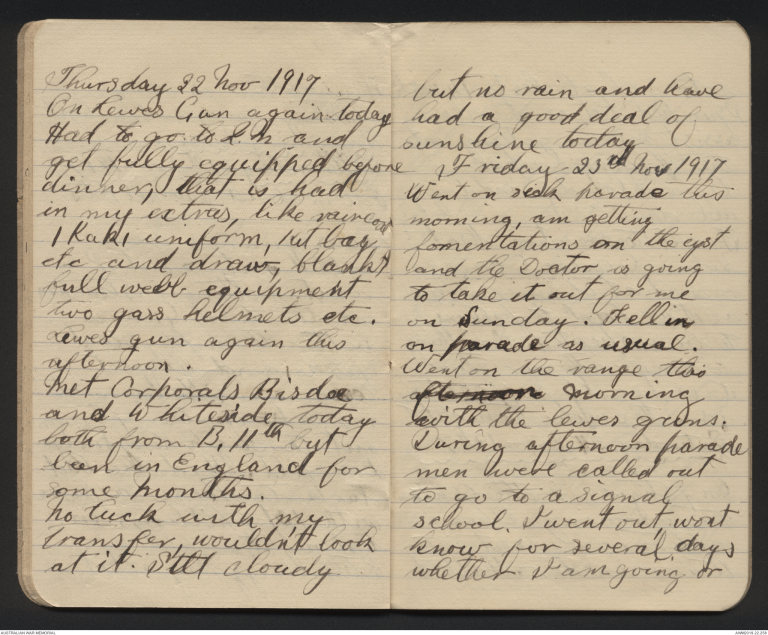 Thursday 22 Nov 1917
On Lewes Gun again today
Had to go to Q.M and
get fully equipped before
dinner, that is had
in my extras, like raincoat
1 Kaki uniform, kit bag
etc and draw, blankt
full webb equipment
two gass helmets etc.
Lewes gun again this
afternoon.
Met Corporals Bisdee
and Whiteside, today
both from B. 11th but
been in England for
some months.
No luck with my
transfer, wouldn't look
at it. Still cloudy
but no rain and have
had a good deal of
sunshine today
Friday 23rd Nov 1917
Went on sick parade this
morning, am getting
fomentations on the cyst
and the Doctor is going
to take it out for me
on Sunday. Fell in
on parade as usual.
Went on the range this
afternoon morning
with the lewes guns.
During afternoon parade
men were called out
to go to a signal
school. I went out, wont
know for several days
whether I am going or
AUSTRALIAN WAR MEMORIAL